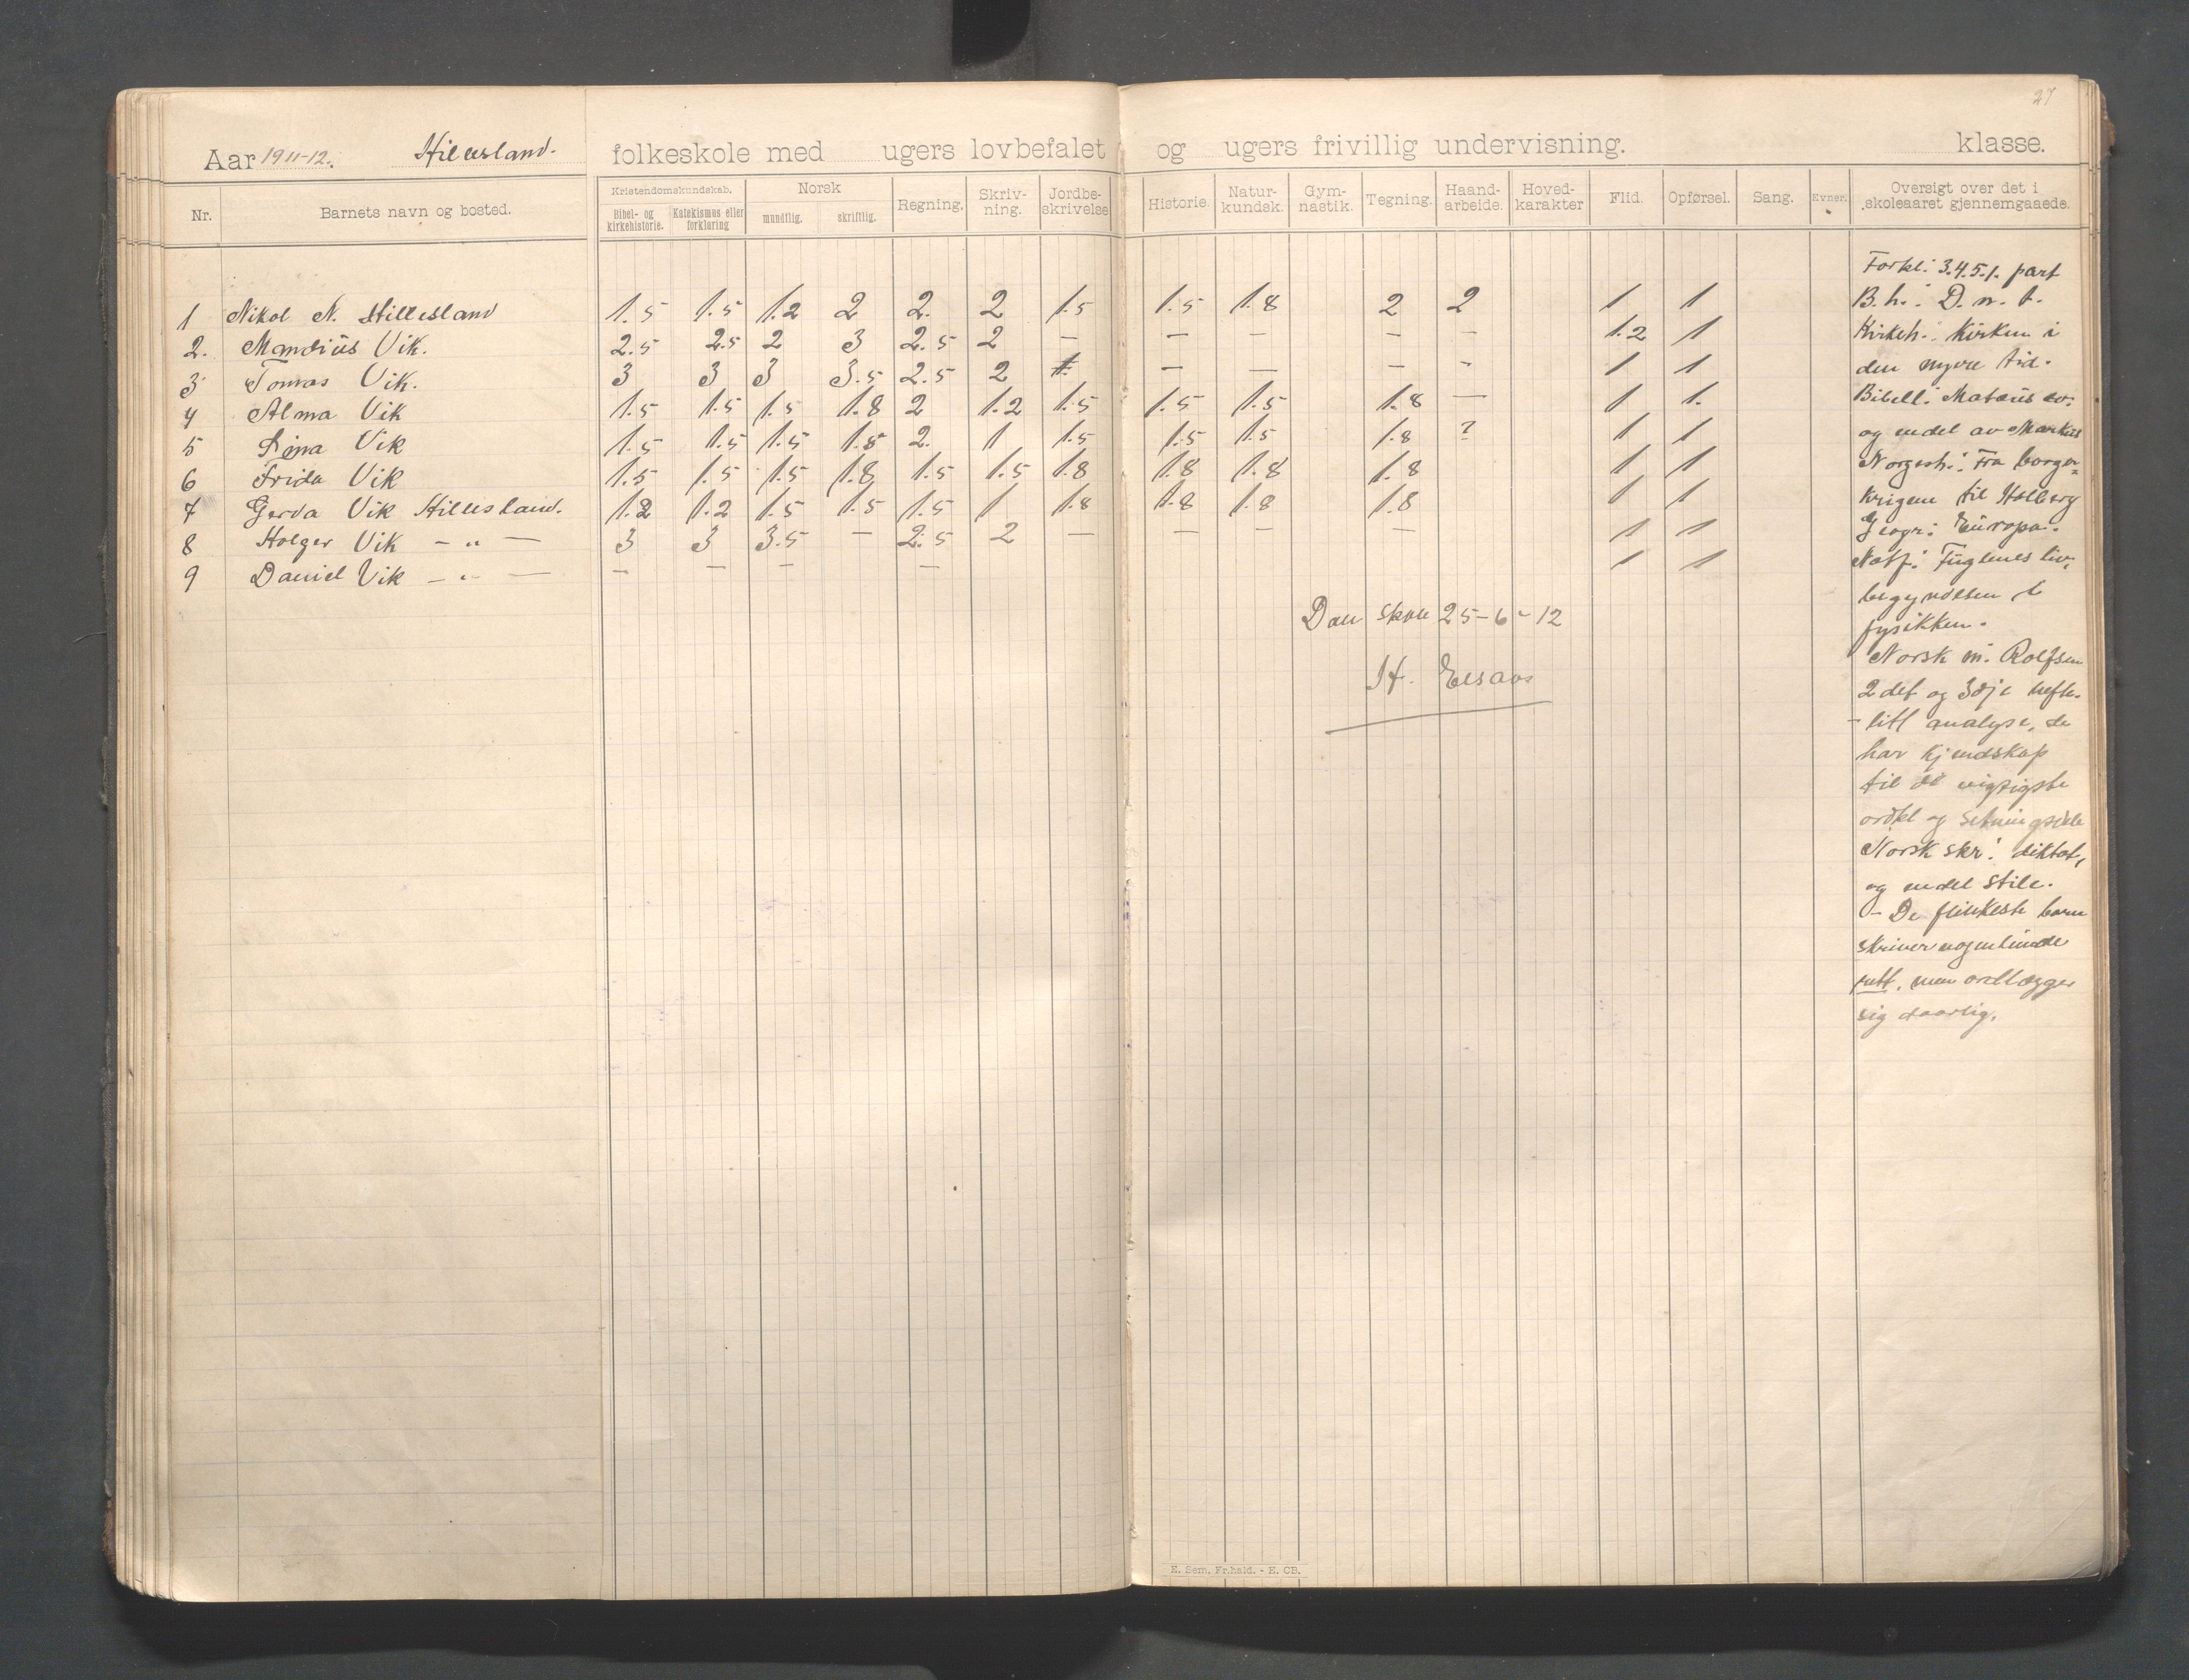 27
Aar 1911-12. Hillesland. folkeskole med ugers lovbefalet og ugers frivillig undervisning. klasse.
Nr. Barnets navn og bosted. Kristendomskundskab. Bibel- og kirkehistorie. Katekismus eller forklaring Norsk mundtlig. skriftlig. Regning. Skriv-ning. Jordbe-skrivelse Historie. Natur-kundsk. Gym-nastik. Tegning. Haand-arbeide. Hoved-karakter Flid. Opførsel. Sang. Evner. Oversigt over det i skoleaaret gjennemgaaede.
1 Nikol N. Hillesland 1.5 1.5 1.2 2 2. 2 1.5 1.5 1.8 2 2 1 1
2. Mandius Vik. 2.5 2.5 2 3 2.5 2 — — — — — 1.2 1
3 Tomas Vik. 3 3 3 3.5 2.5 2 — — — - 1 1
4 Alma Vik 1.5 1.5 1.5 1.8 2 1.2 1.5 1.5 1.5 1.8 — 1 1.
5 Lina Vik 1.5 1.5 1.5 1.8 2. 1 1.5 1.5 1.5 1.8 ? 1 1
6 Frida Vik 1.5 1.5 1.5 1.8 1.5 1.5 1.8 1.8 1.8 1.8 1 1
7 Gerda Vik Hillesland. 1.2 1.2 1.5 1.5 1.5 1 1.8 1.8 1.8 1.8 1 1
8 Holger Vik — " — 3 3 3.5 — 2.5 2 — — — — 1 1
9 Daniel Vik — " — — — — — 1 1
Dau skole 25-6-12
H. Elsaas
Forkl: 3.4.5.1. part
B.h.: D. n. t.
Kirkeh.: Kirken i
den nyere tid.
Bibell: Matæus ev.
og endel av Markus
Norgesh.: Fra borger=
krigene til Holberg
Geogr: Europa.
Natf: Fuglenes liv,
begyndelsen t
fysikken.
Norsk m: Rolfsen
2det og 3dje hefte.
- litt analyse, de
har kjendskap
til de vigtigste
ordkl og setningsdele
Norsk skr: diktat,
og endel stile.
- De flinkeste barn
skriver nogenlunde
rett, men ordlægger
sig daarlig.
E. Sem, Fr.hald. - E. CB.